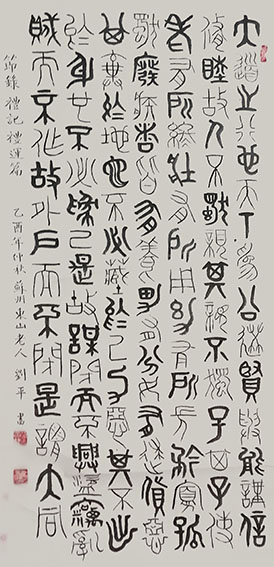 大道之行也天下為公選賢與能講信
修睦故人不獨親其親不獨子其子使
老有所終壯有所用幼有所長矜寡孤
獨廢疾者皆有所養男有分女有歸貨惡
其棄於地也不必藏於己力惡其不出
於身也不必為己是故謀閉而不興盜竊亂
賊而不作故外戶而不閉是謂大同
節錄禮記禮運篇
乙酉年仲秋蘇州東山老人劉平書